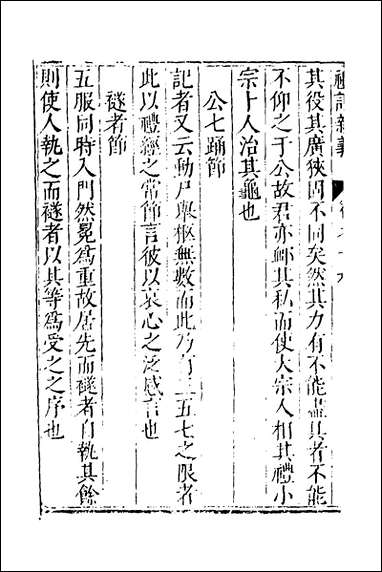 禮記新義
其役其廣狹固不同矣然其力有不能盡具者不能
不仰之于公故君亦卹其私而使大宗人相其禮小
宗卜人治其龜也
公七踊節
記者又云動尸舉柩無數而此乃有三五七之限者
此以禮經之常節言彼以哀心之泛感言也
襚者節
五服同時入門然冕爲重故居先而襚者自執其餘
則使人執之而襚者以其等爲受之之序也